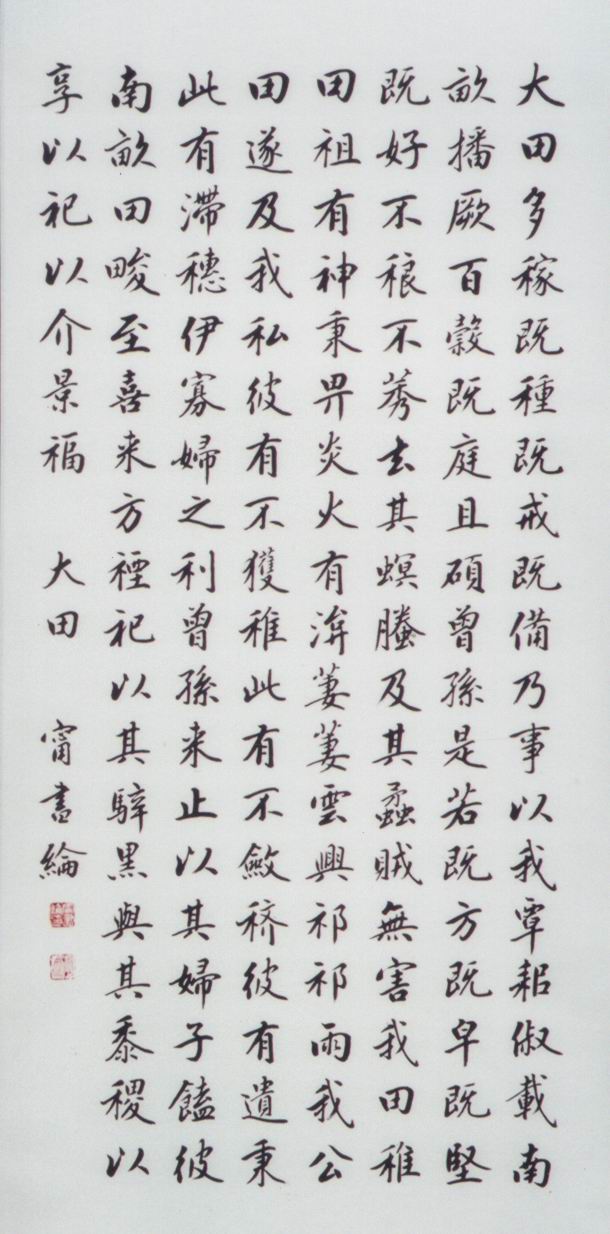 大田多稼既種既戒既備乃事以我覃耜俶載南
畝播厥百穀既庭且碩曾孫是若既方既皁既堅
既好不稂不莠去其螟螣及其蟊賊無害我田稚
田祖有神秉畀炎火有渰萋萋雲興祁祁雨我公
田遂及我私彼有不獲稚此有不斂穧彼有遺秉
此有滯穗伊寡婦之利曾孫来止以其婦子饁彼
南畝田畯至喜来方禋祀以其騂黑與其黍稷以
享以祀以介景福 大田 甯書綸